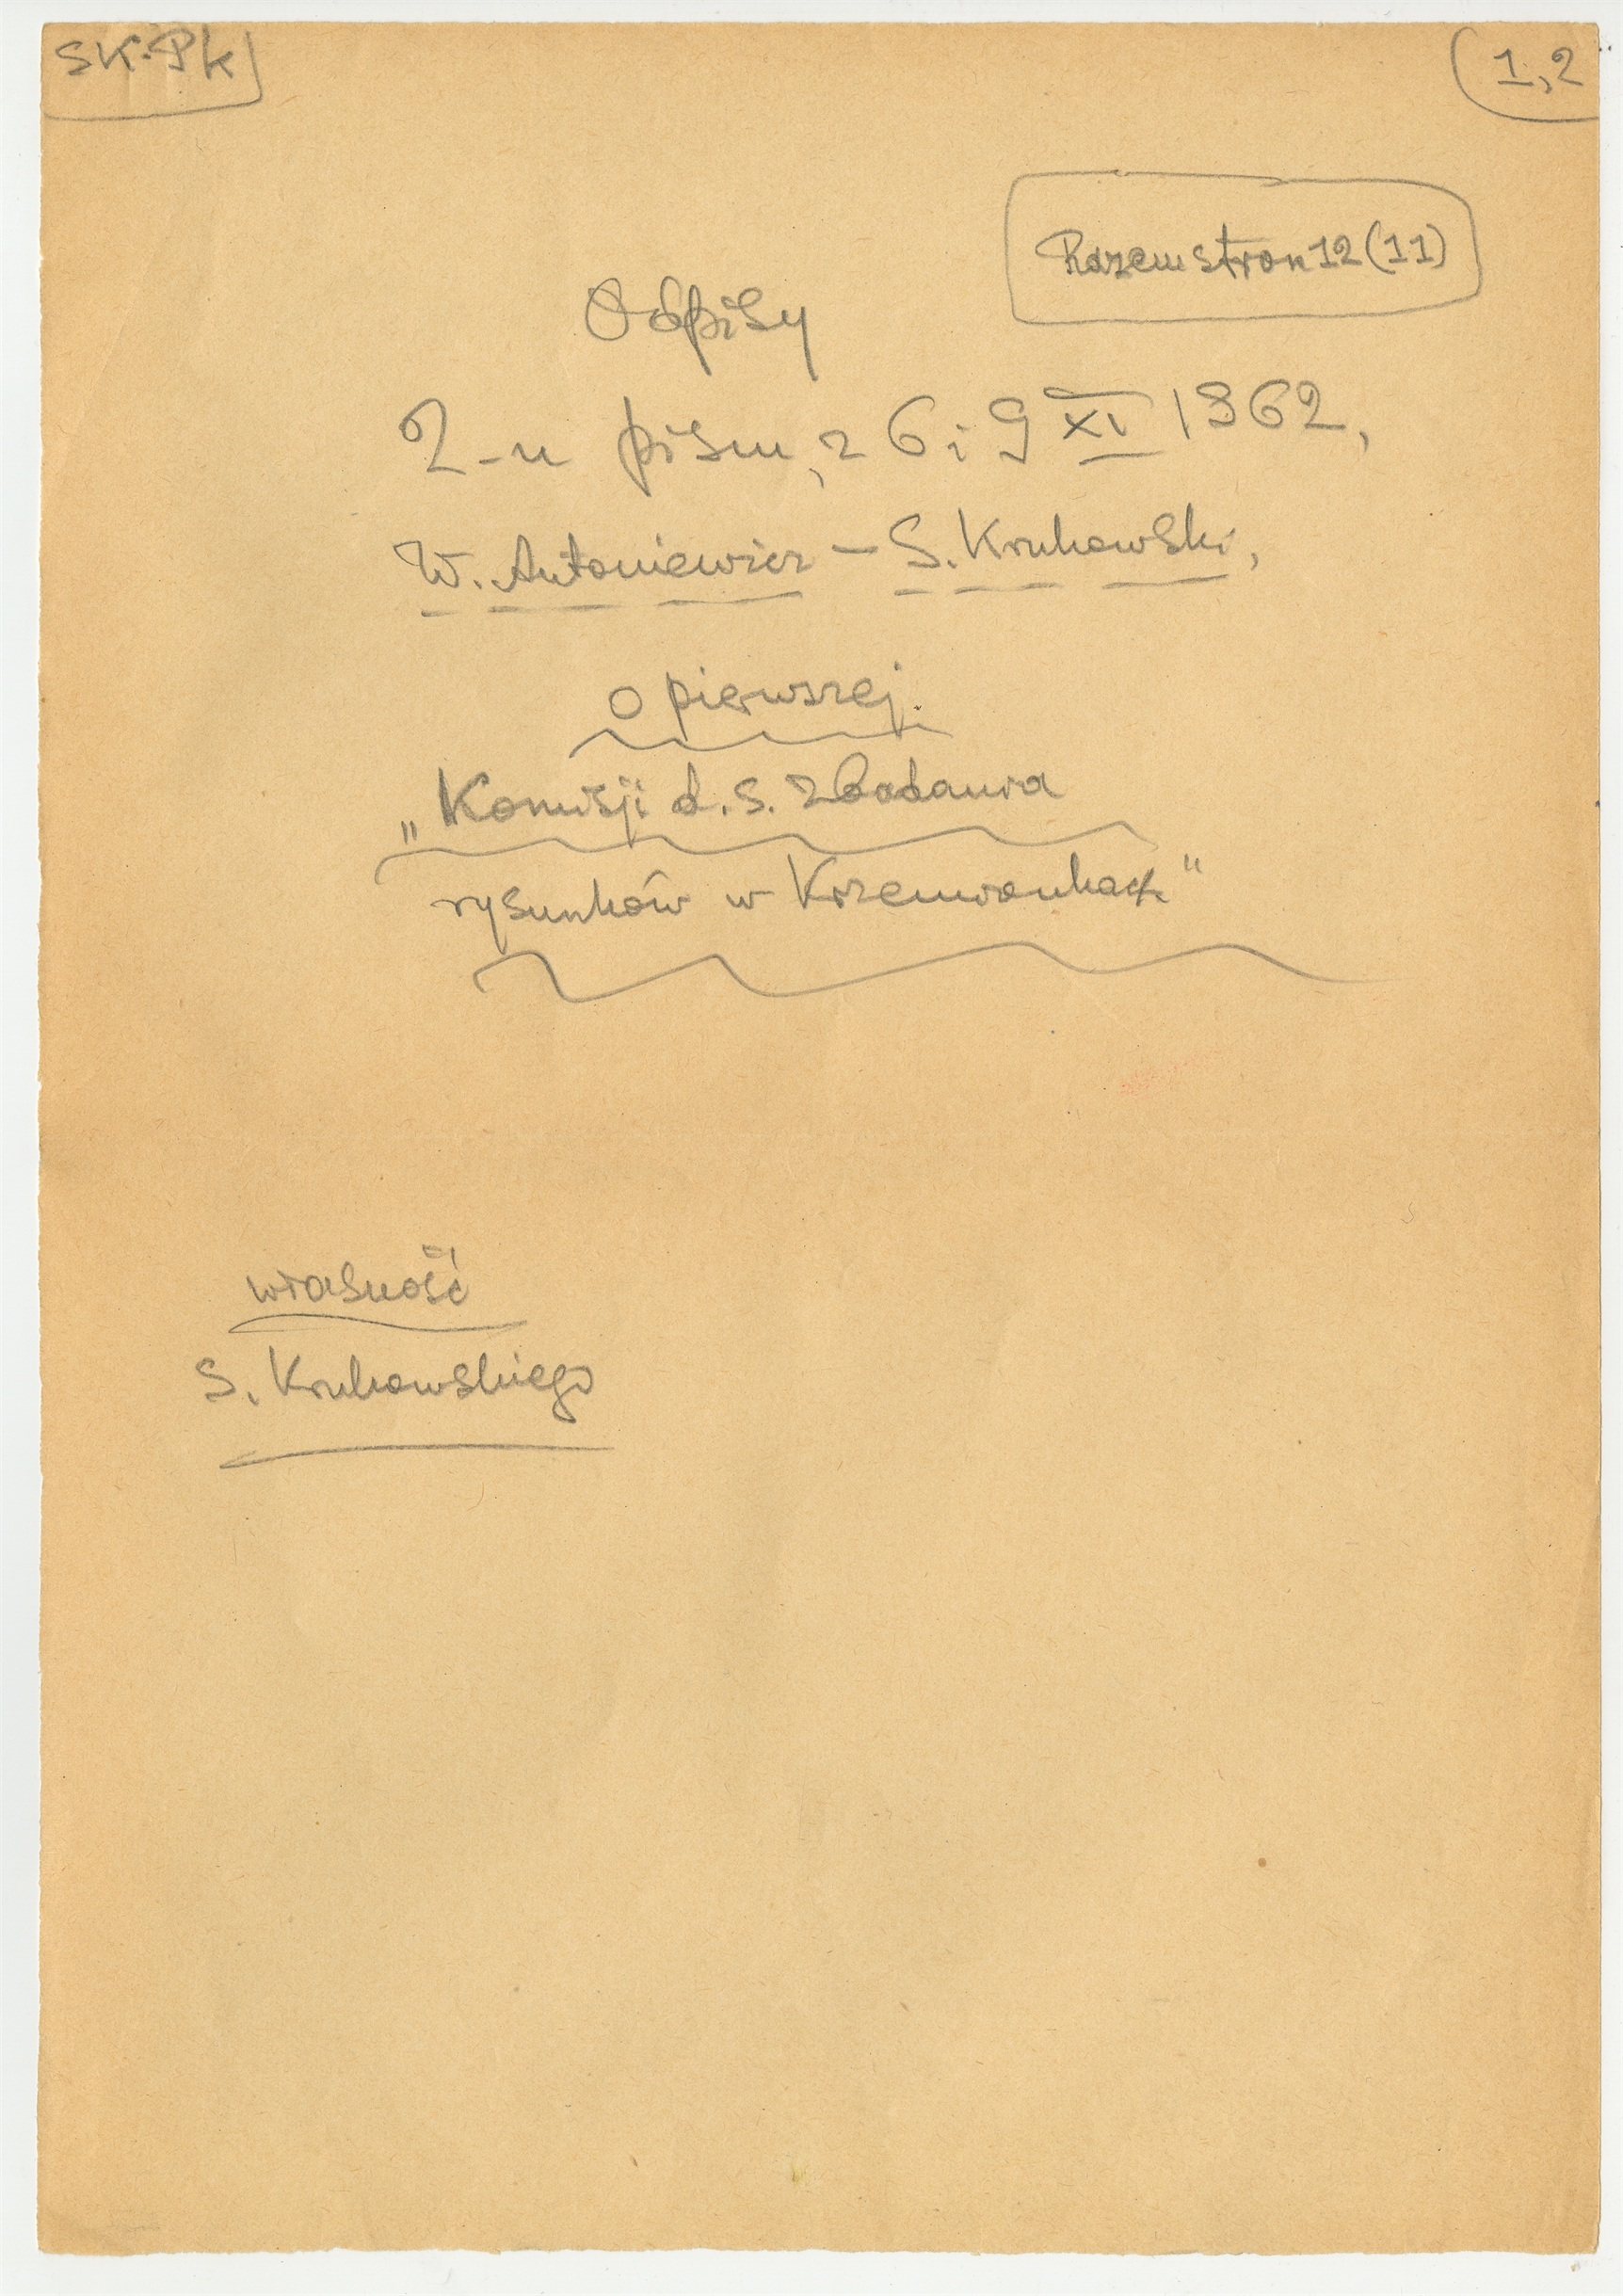 SK.Pk
1,2
Razem stron 12 (11)
Odpisy
2-u pism, z 6 i 9 XI 1962,
W. Antoniewicz – S. Krukowski,
o pierwszej
„Komisji d. s. zbadania
rysunków w Krzemionkach"
własność
S. Krukowskiego